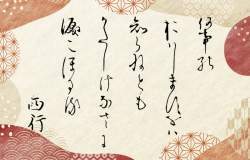 何事の
おハしますかハ
知らねとも
かたしけなさに
涙こほるる
西行